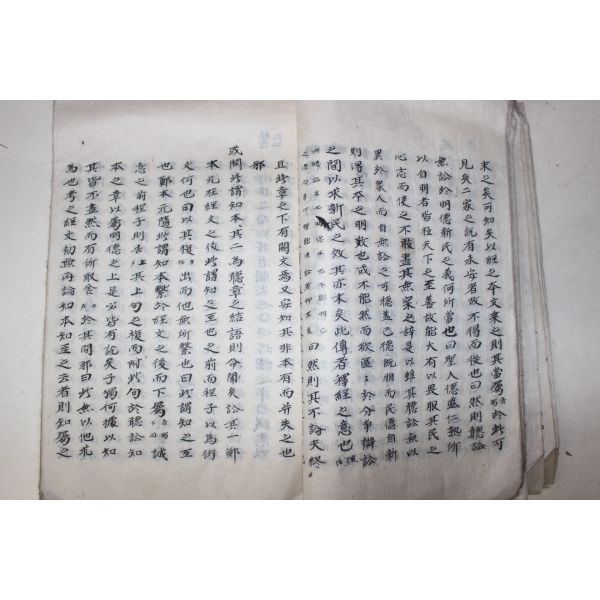 求之矣可知矣以經之本文乘之則其當屬於此可
見矣二家之說有未安者故不得而從也曰然則聽訟
無訟於明德新民之義何所當也曰聖人德盛仁熟所
以自明者皆極天下之至善故能大有以畏服其民之
心志而使之不敢盡其無實之辭是以雖其聽訟無以
異於衆人而自無訟之可聽蓋己德旣明而民德自新
則得其本之明效也或不能然而欲區區於分爭辯訟
之間以求新民之效其亦末矣此傳者釋經之意也
曰然則其不論夫終
且此章之下有闕文焉又安知其非本有而幷失之也
邪
或問此謂知本其二爲聽章之結語則今闕矣訟其一鄭
本元在經之後此謂知之至也之前而程子以爲衍
文何也曰以其復出而他無所繫也曰此謂知之至
也鄭本元隨此謂知本繫於經文之後而下屬誠
意之前程子則去其上句之複而附此句於聽訟知
本之章以屬明德之上是必皆有說矣子獨何據以知
其皆不盡然而有所取舍於其間邪曰此無以他求
爲也考之經文初無再論知本知至之云者則知屬之